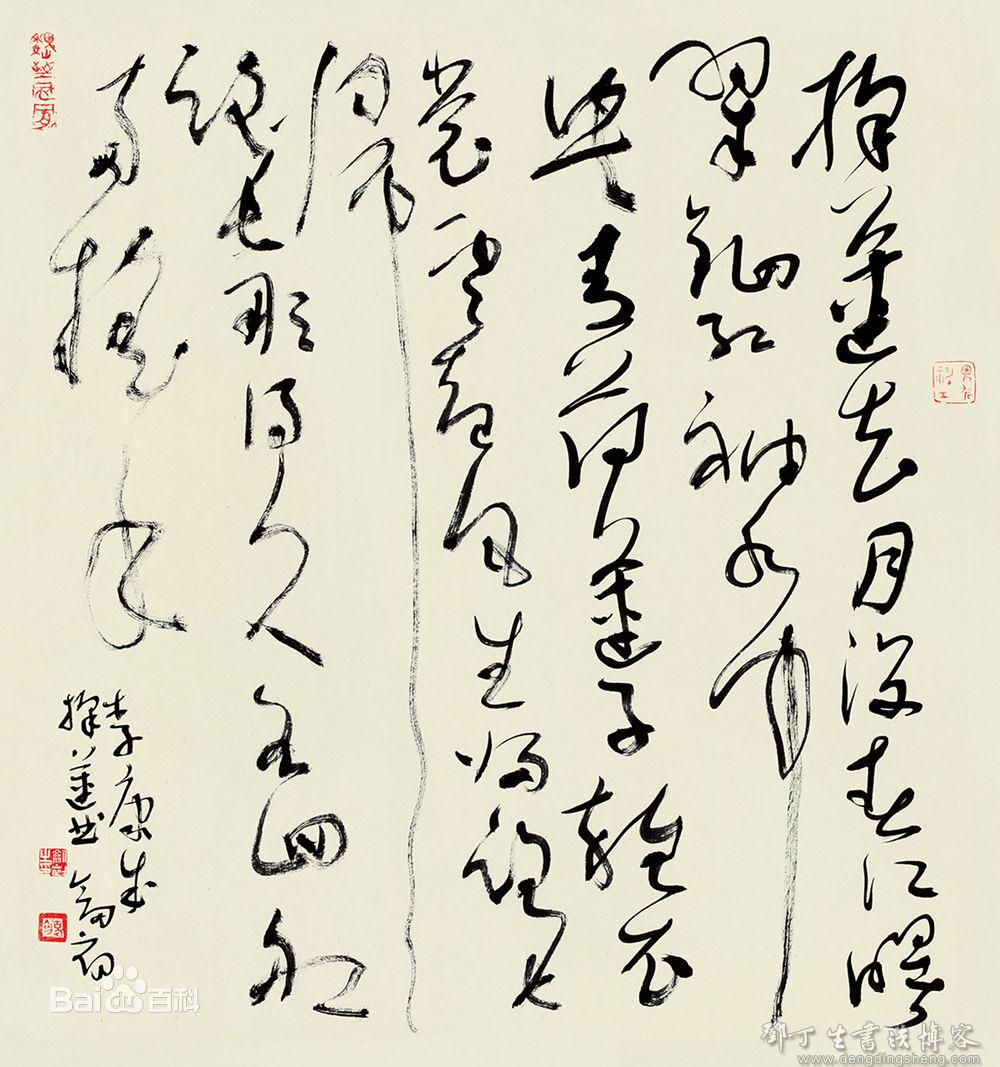 採蓮去月没春江曙
翠鈿紅袖水中
央青荷蓮子雜衣
雲起風生歸路長
路長那得久各回船
兩搖手
李康成
採蓮曲
Bai 百科
鄧丁生書法博客
www.dengdingsheng.com